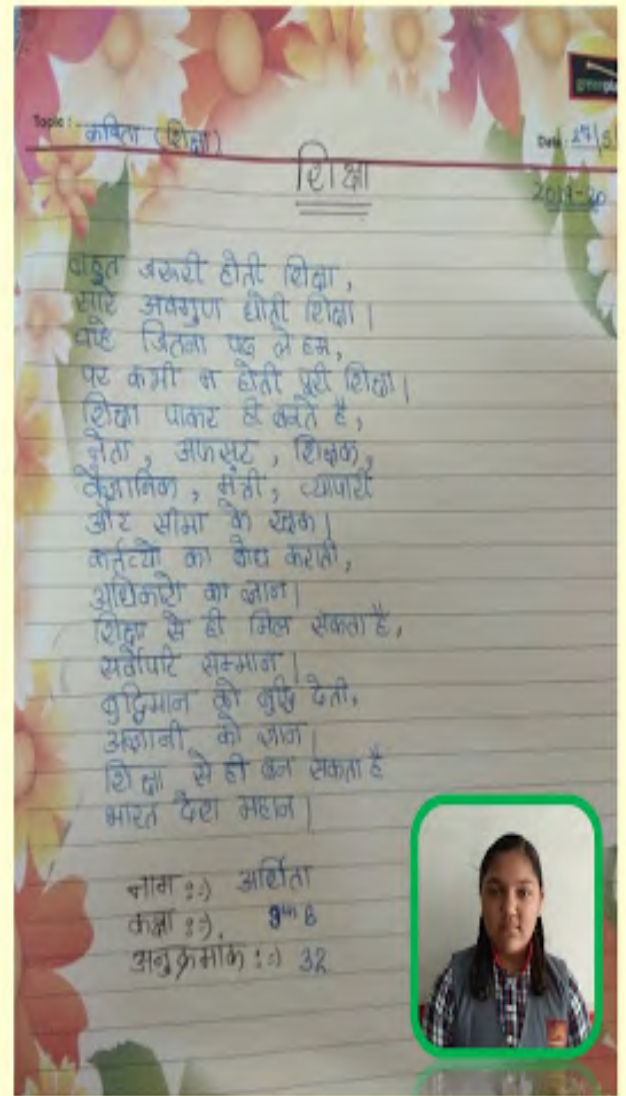 greenpl
Topic : कविता (शिक्षा)
Date : 27/5/
शिक्षा
2019-20
बहुत जरूरी होती शिक्षा,
सारे अवगुण धोती शिक्षा।
चाहे जितना पढ़ ले हम,
पर कभी न होती पूरी शिक्षा।
शिक्षा पाकर ही बनते है,
नेता, अफसर, शिक्षक,
वैज्ञानिक, मंत्री, व्यापारी
और सीमा के रक्षक।
कर्तव्यों का बोध कराती,
अधिकारों का ज्ञान।
शिक्षा से ही मिल सकता है,
सर्वोपरि सम्मान।
बुद्धिमान को बुद्धि देती,
अज्ञानी को ज्ञान।
शिक्षा से ही बन सकता है
भारत देश महान।
नाम :-) अर्शिता
कक्षा :-) 9th B
अनुक्रमांक :-) 32